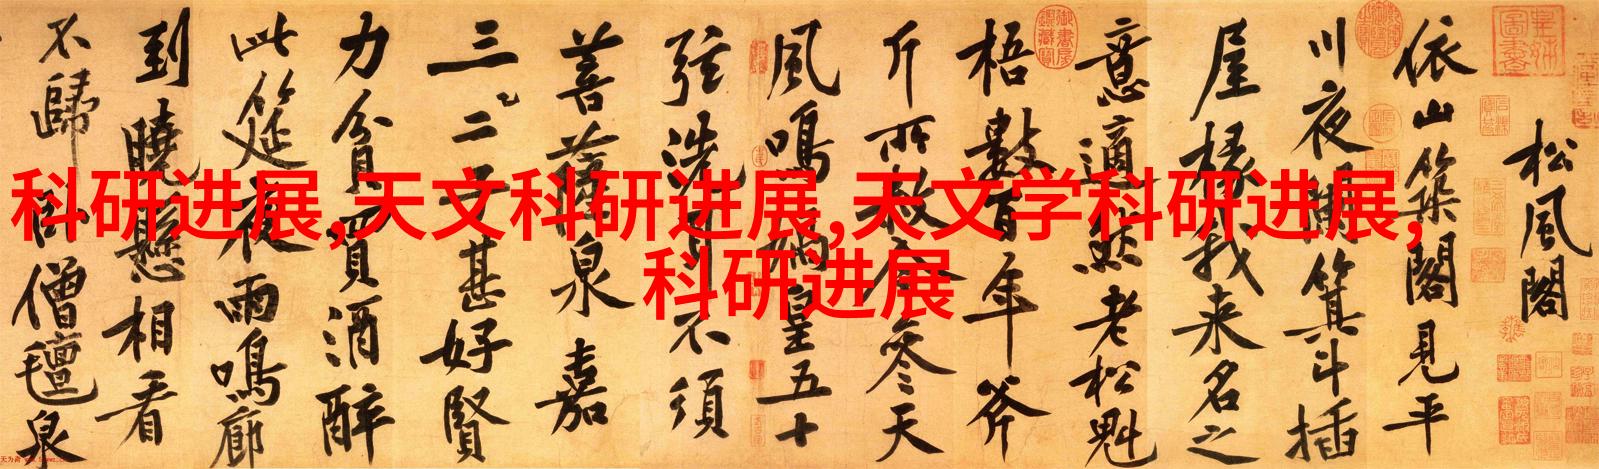 科研进展,天文科研进展,天文学科研进展,
科研进展
松風閣
依山築閣見平
川夜闌箕斗插
屋椽我来名之
意適然老松魁
梧數百年斧
斤所赦今參天
風鳴媧皇五十
弦洗耳不須
菩薩泉嘉
三二子甚好賢
力貧買酒醉
此筵夜雨鳴廊
到曉懸相看
不歸卧僧氊泉